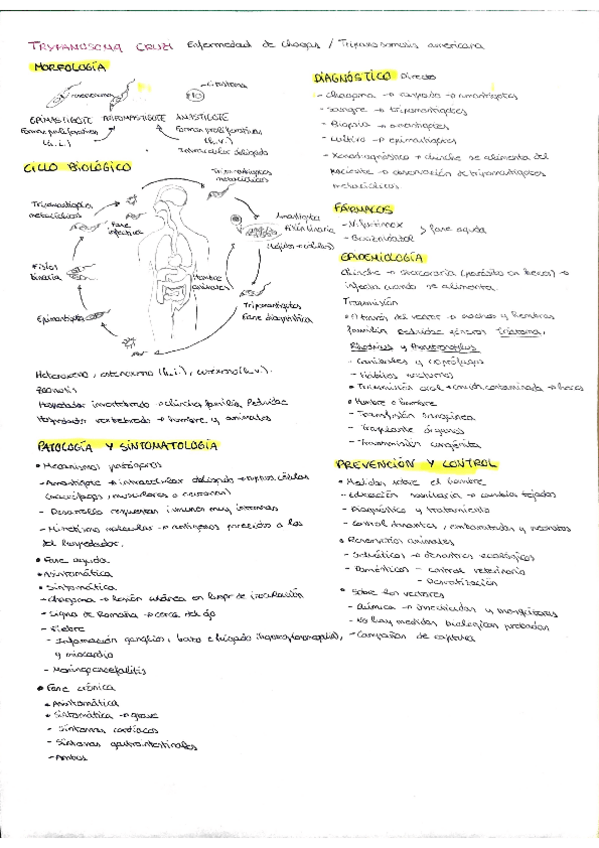 TRYPANOSOMA CRUZI Enfermedad de Chagas / Tripanosomosis americana
MORFOLOGÍA
EPIMASTIGOTE TRIPOMASTIGOTE AMASTIGOTE
Forma proliferativa
(h.i.)
Forma proliferativa
(h.v.)
Intracelular obligado
CICLO BIOLÓGICO
Tripomastigotes
metacíclicos
Tripomastigotes
metacíclicos
Fase
infectiva
Amastigotes
Fisión binaria
Fisión
binaria
Hombre
animales
Epimastigotes
Tripomastigotes
Fase diagnóstica
Heteroxeno, estenoxeno (h.i.), eurixeno (h.v.).
Zoonosis
Hospedador invertebrado → chinche familia Reduvidae
Hospedador vertebrado → hombre y animales
PATOLOGÍA Y SINTOMATOLOGÍA
• Mecanismos patógenos
- Amastigote → intracelular obligado → ruptura células
(macrófagos, musculares o neuronas)
- Desarrollo respuestas inmunes muy intensas
- Mimetismo molecular → antígenos parecidos a los
del hospedador.
• Fase aguda
• Asintomática
• Sintomática
- Chagoma → lesión cutánea en lugar de inoculación
- Signo de Romaña → cerca del ojo
- Fiebre
- Inflamación ganglios, bazo e hígado (hepatoesplenomegalia),
y miocardio
- Meningoencefalitis
• Fase crónica
• Asintomática
• Sintomática → grave
- Síntomas cardíacos
- Síntomas gastrointestinales
- Ambos
DIAGNÓSTICO Directo
- Chagoma → amastigotes
- Sangre → tripomastigotes
- Biopsia → amastigotes
- Cultivo → epimastigotes
- Xenodiagnóstico → chinche se alimenta del
paciente → observación de tripomastigotes
metacíclicos.
FÁRMACOS
- Nifurtimox
- Benznidazol
fase aguda
EPIDEMIOLOGÍA
Chinche → estercoraria (parásito en heces) →
infecta cuando se alimenta.
Transmisión
• A través del vector → machos y hembras
familia Reduvidae géneros Triatoma,
Rhodnius y Panstrongylus
- Caníbales y coprófagos
- Hábitos nocturnos
• Transmisión oral → comida contaminada → heces
• Hombre a hombre
- Transfusión sanguínea
- Trasplante órganos
- Transmisión congénita
PREVENCIÓN Y CONTROL
• Medidas sobre el hombre
- Educación sanitaria → cambio tejados
- Diagnóstico y tratamiento
- Control donantes, embarazadas y neonatos
• Reservorios animales
- Selváticos → desastres ecológicos
- Domésticos - control veterinario
- Desratización
• Sobre los vectores
- Química → insecticidas y mosquiteras
- No hay medidas biológicas probadas
- Campañas de captura